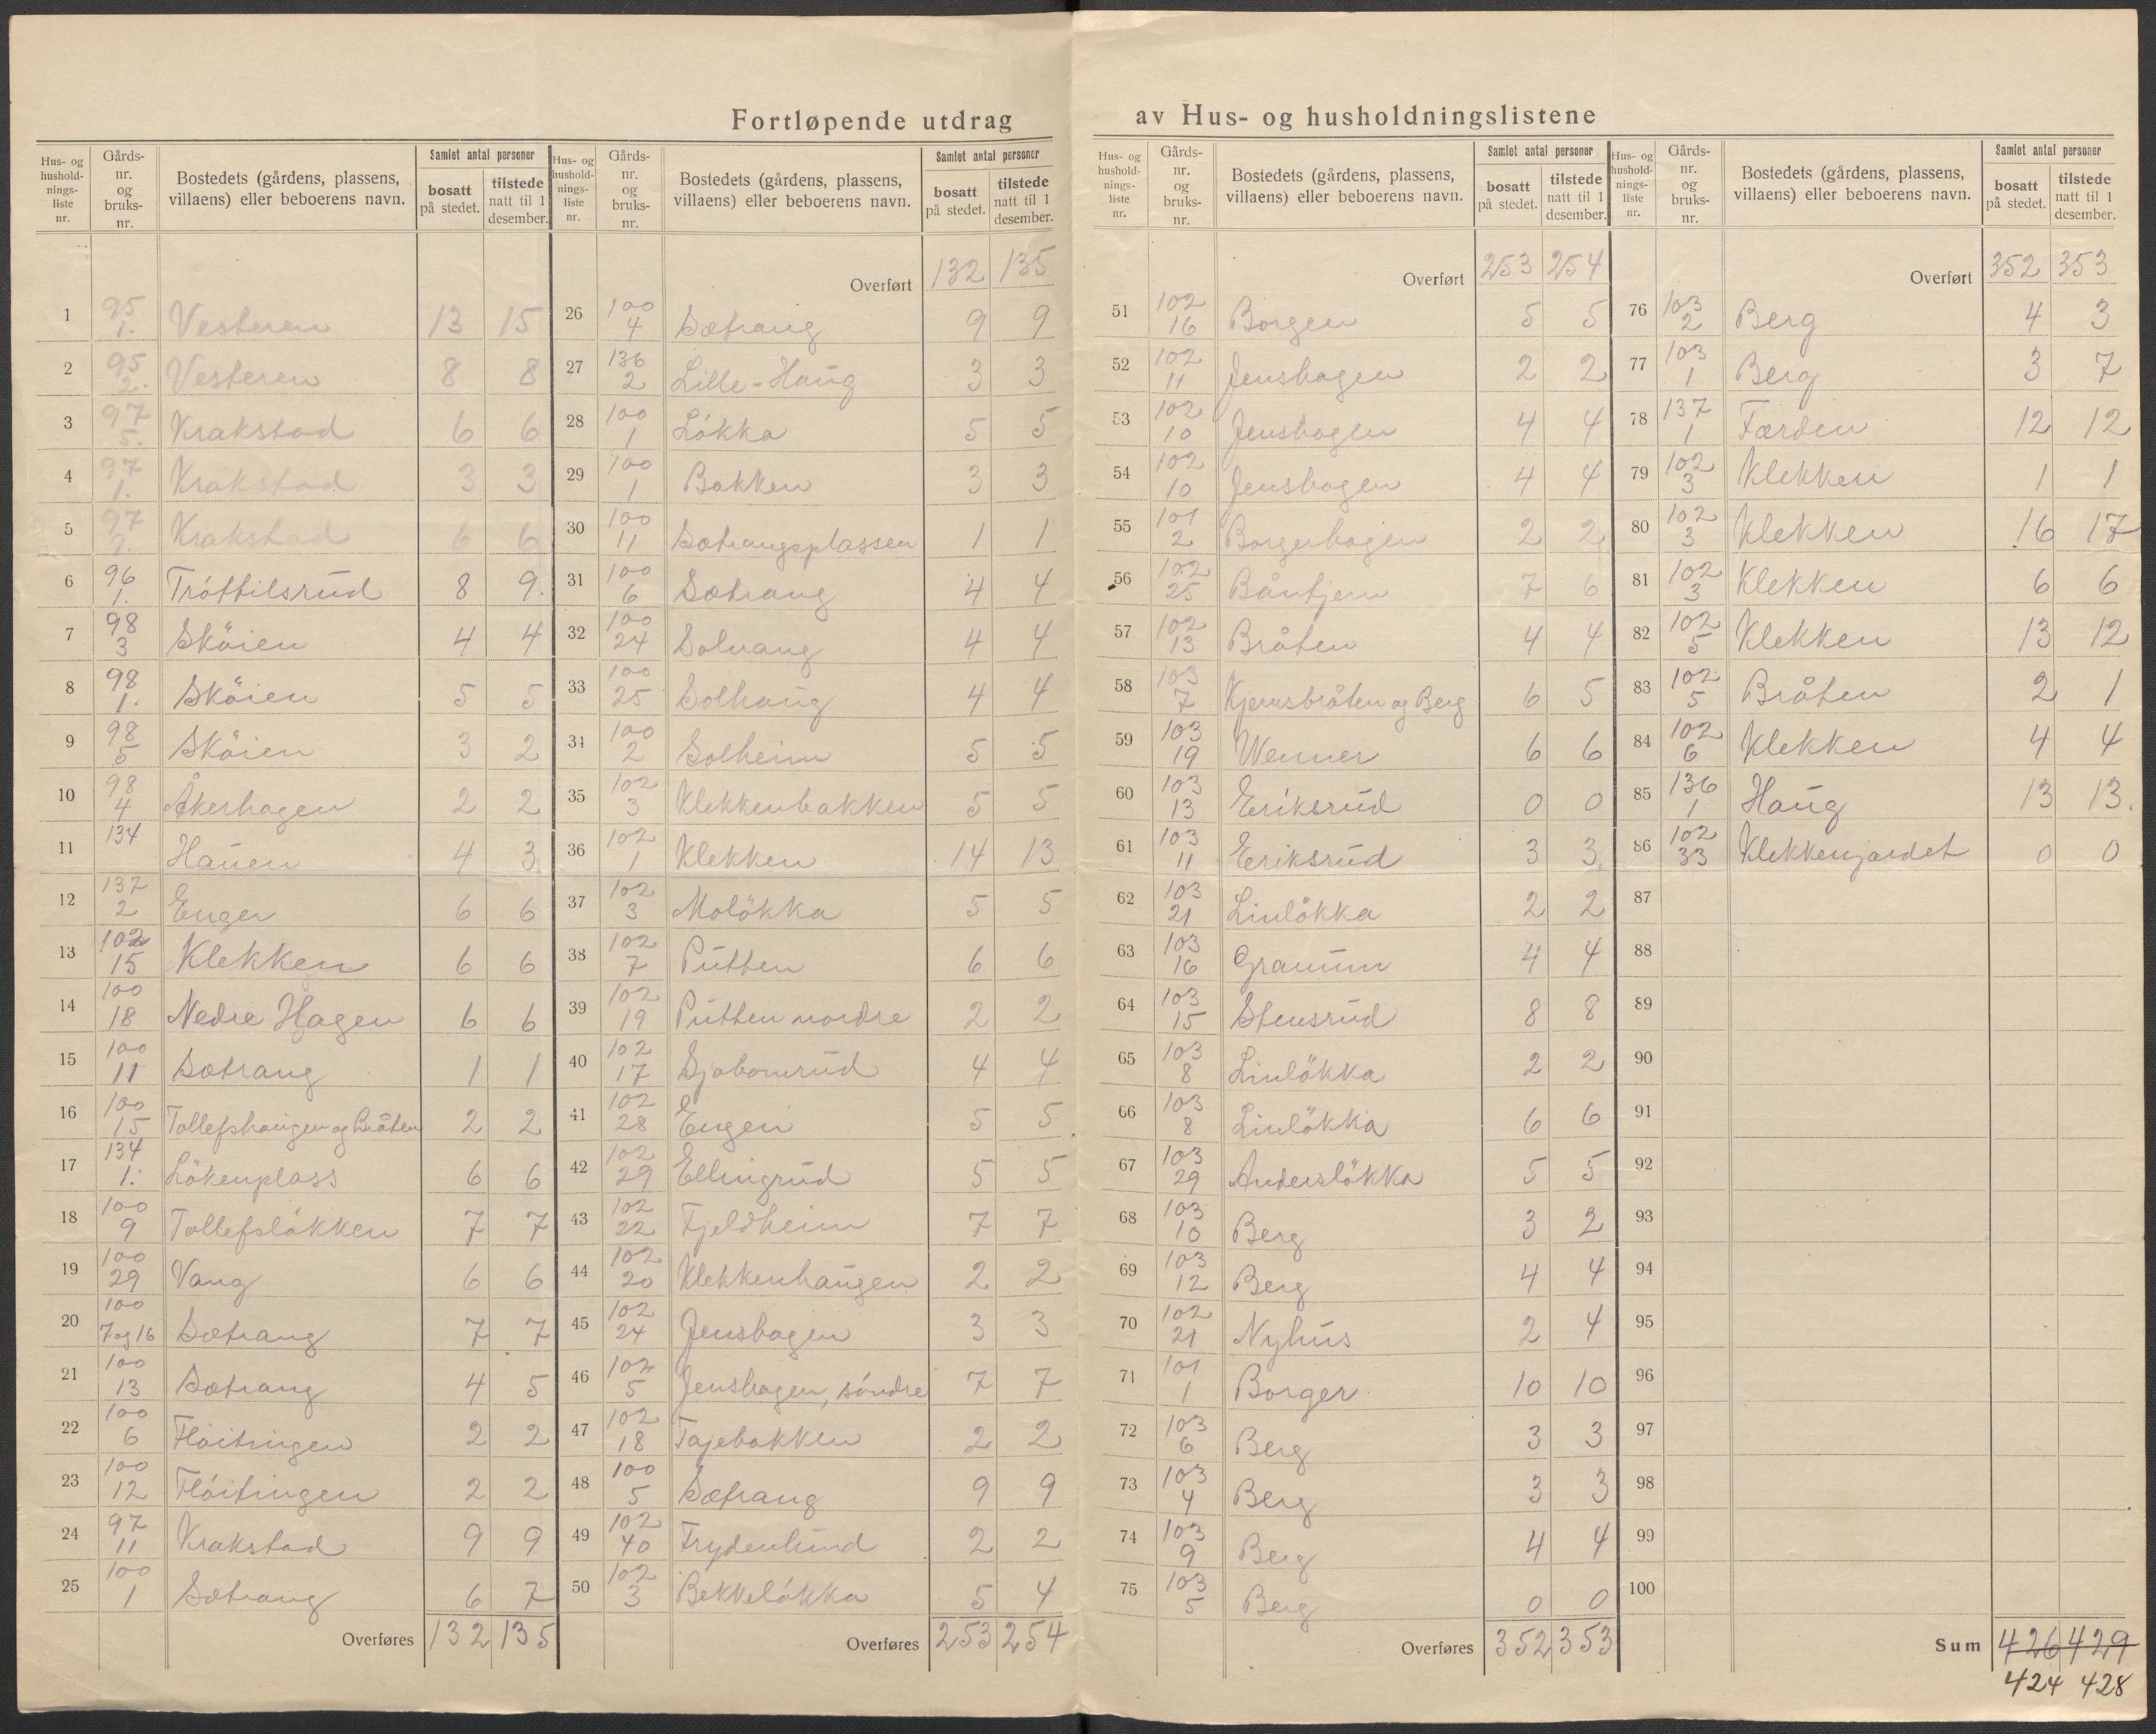 Fortløpende utdrag av Hus- og husholdningslistene
Hus- og hushold-nings-liste nr. Gårds-nr. og bruks-nr. Bostedets (gårdens, plassens, villaens) eller beboerens navn. Samlet antal personer bosatt på stedet. tilstede natt til 1 desember.
1 95 1. Vesteren 13 15
2 95 2. Vesteren 8 8
3 97 5. Krakstad 6 6
4 97 1. Krakstad 3 3
5 97 Krakstad 6 6
6 96 1. Tróttilsrud 8 9.
7 98 3 Sköien 4 4
8 98 1. Sköien 5 5
9 98 5 Sköien 3 2
10 98 4 Åkerhagen 2 2
11 134 Hauen 4 3
12 137 2 Enger 6 6
13 102 15 Klekken 6 6
14 100 18 Nedre Hagen 6 6
15 100 11 Sætrang 1 1
16 100 15 Tollefshaugen og Bråten 2 2
17 134 1. Lökenplass 6 6
18 100 9 Tollefslókken 7 7
19 100 29 Vang 6 6
20 100 7 og 16 Sætrang 7 7
21 100 13 Sætrang 4 5
22 100 6 Flóitingen 2 2
23 100 12 Flóitingen 2 2
24 97 11 Krakstad 9 9
25 100 1 Sætrang 6 7
Overføres 132 135
Hus- og hushold-nings-liste nr. Gårds-nr. og bruks-nr. Bostedets (gårdens, plassens, villaens) eller beboerens navn. Samlet antal personer bosatt på stedet. tilstede natt til 1 desember.
Overført 132 135
26 100 4 Sætrang 9 9
27 136 2 Lille-Haug 3 3
28 100 1 Lókka 5 5
29 100 1 Bakken 3 3
30 100 11 Sætrangsplassen 1 1
31 100 6 Sætrang 4 4
32 100 24 Solvang 4 4
33 100 25 Solhaug 4 4
34 100 2 Solheim 5 5
35 102 3 Klekkenbakken 5 5
36 102 1 Klekken 14 13
37 102 3 Molökka 5 5
38 102 7 Putten 6 6
39 102 19 Putten nordre 2 2
40 102 17 Sjobomrud 4 4
41 102 28 Engen 5 5
42 102 29 Ellingrud 5 5
43 102 22 Fjeldheim 7 7
44 102 20 Klekkenhaugen 2 2
45 102 24 Jenshagen 3 3
46 102 5 Jenshagen, söndre 7 7
47 102 18 Tajebakken 2 2
48 100 5 Sætrang 9 9
49 102 40 Frydenlund 2 2
50 102 3 Bekkelókka 5 4
Overføres 253 254
Hus- og hushold-nings-liste nr. Gårds-nr. og bruks-nr. Bostedets (gårdens, plassens, villaens) eller beboerens navn. Samlet antal personer bosatt på stedet. tilstede natt til 1 desember.
Overført 253 254
51 102 16 Borgen 5 5
52 102 11 Jenshagen 2 2
53 102 10 Jenshagen 4 4
54 102 10 Jenshagen 4 4
55 101 2 Borgerhagen 2 2
56 102 25 Båntjern 7 6
57 102 13 Bråten 4 4
58 103 7 Kjernsbråten og Berg 6 5
59 103 19 Wenner 6 6
60 103 13 Eriksrud 0 0
61 103 11 Eriksrud 3 3
62 103 21 Linlökka 2 2
63 103 16 Granum 4 4
64 103 15 Stensrud 8 8
65 103 8 Linlökka 2 2
66 103 8 Linlökka 6 6
67 103 29 Anderslökka 5 5
68 103 10 Berg 3 2
69 103 12 Berg 4 4
70 102 21 Nyhus 2 4
71 101 1 Borger 10 10
72 103 6 Berg 3 3
73 103 4 Berg 3 3
74 103 9 Berg 4 4
75 103 5 Berg 0 0
Overføres 352 353
Hus- og hushold-nings-liste nr. Gårds-nr. og bruks-nr. Bostedets (gårdens, plassens, villaens) eller beboerens navn. Samlet antal personer bosatt på stedet. tilstede natt til 1 desember.
Overført 352 353
76 103 2 Berg 4 3
77 103 1 Berg 3 7
78 137 1 Færden 12 12
79 102 3 Klekken 1 1
80 102 3 Klekken 16 17
81 102 3 Klekken 6 6
82 102 5 Klekken 13 12
83 102 5 Bråten 2 1
84 102 6 Klekken 4 4
85 136 1 Haug 13 13.
86 102 33 Klekkenjordet 0 0
87
88
89
90
91
92
93
94
95
96
97
98
99
100
Sum 426 429
424 428